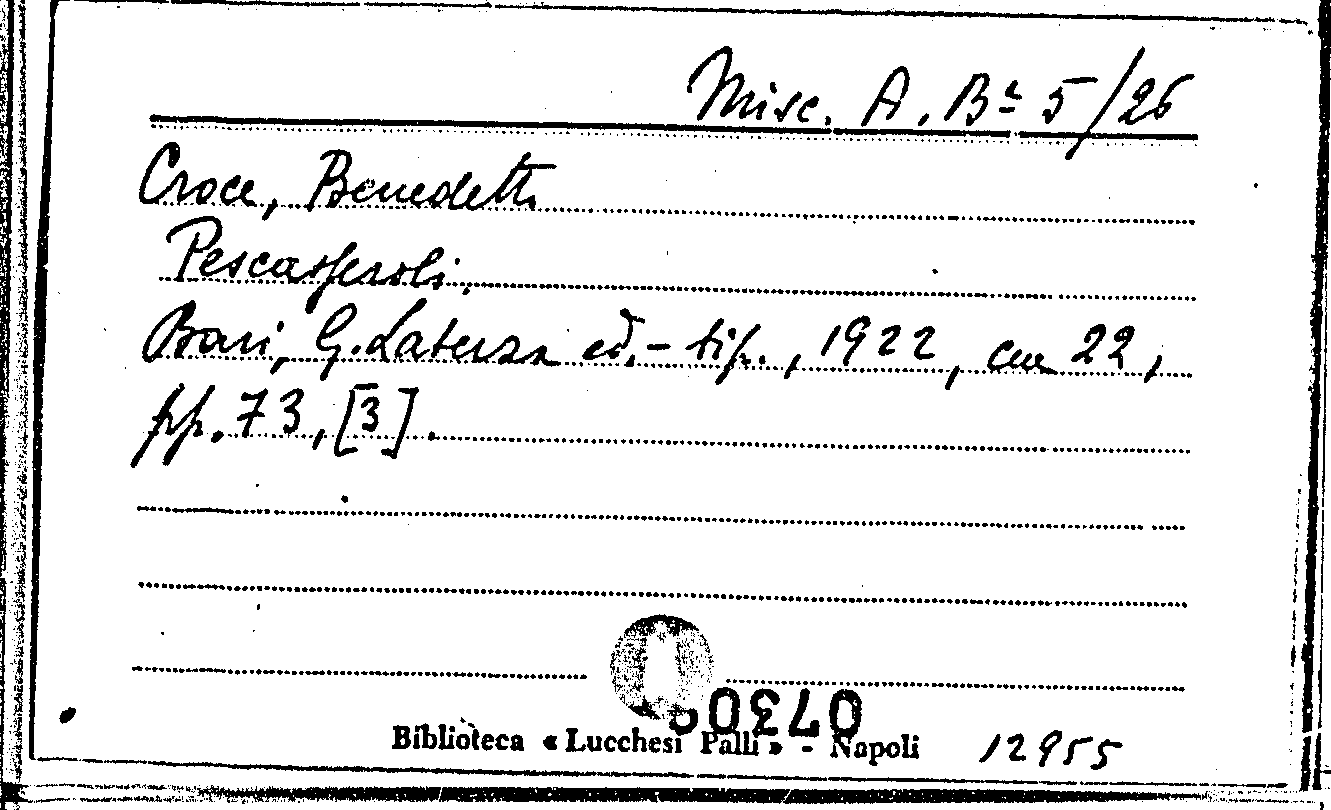 Misc. A. Bª 5/26
Croce, Benedetto
Pescasseroli.
Bari, G. Laterza ed.-tip., 1922, cm 22,
pp. 73, [3].
Biblioteca « Lucchesi Palli » - Napoli 12955